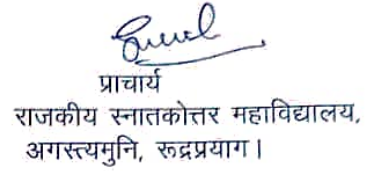 प्राचार्य
राजकीय स्नातकोत्तर महाविद्यालय,
अगस्त्यमुनि, रूद्रप्रयाग।